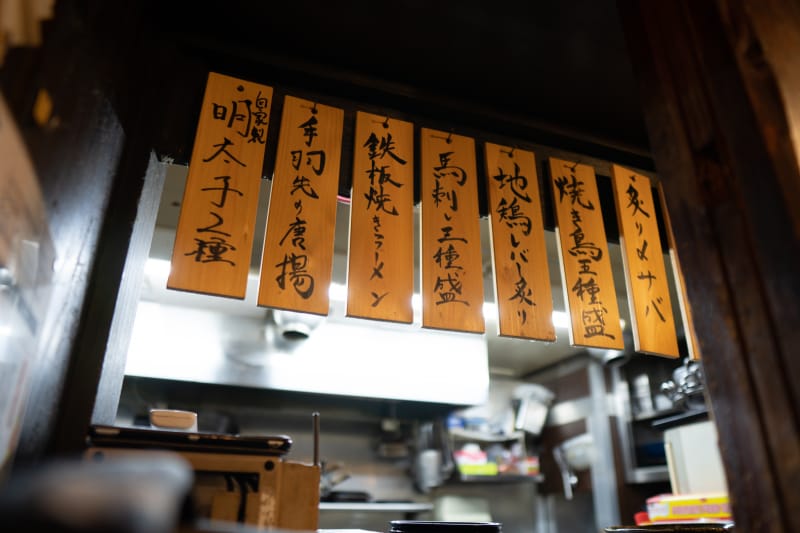 自家製
明太子2種
手羽先の唐揚
鉄板焼きラーメン
馬刺し三種盛
地鶏レバー炙り
焼き鳥五種盛
炙り〆サバ